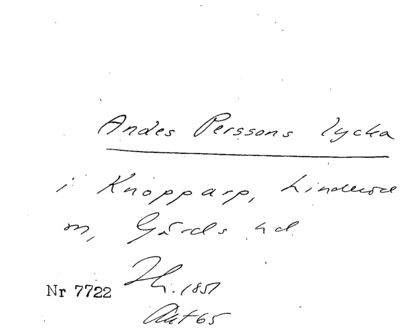 Andes Perssons lycka
i Knopparp, Linderöd
m, Gärds hd
Nr 7722
1851
Akt 65